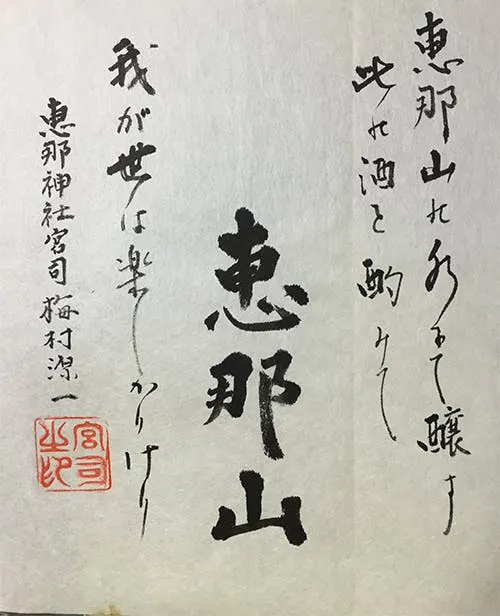 恵那山の水にて醸す
此の酒を酌みて
恵那山
我が世は楽しかりけり
恵那神社宮司 梅村
宮司之印